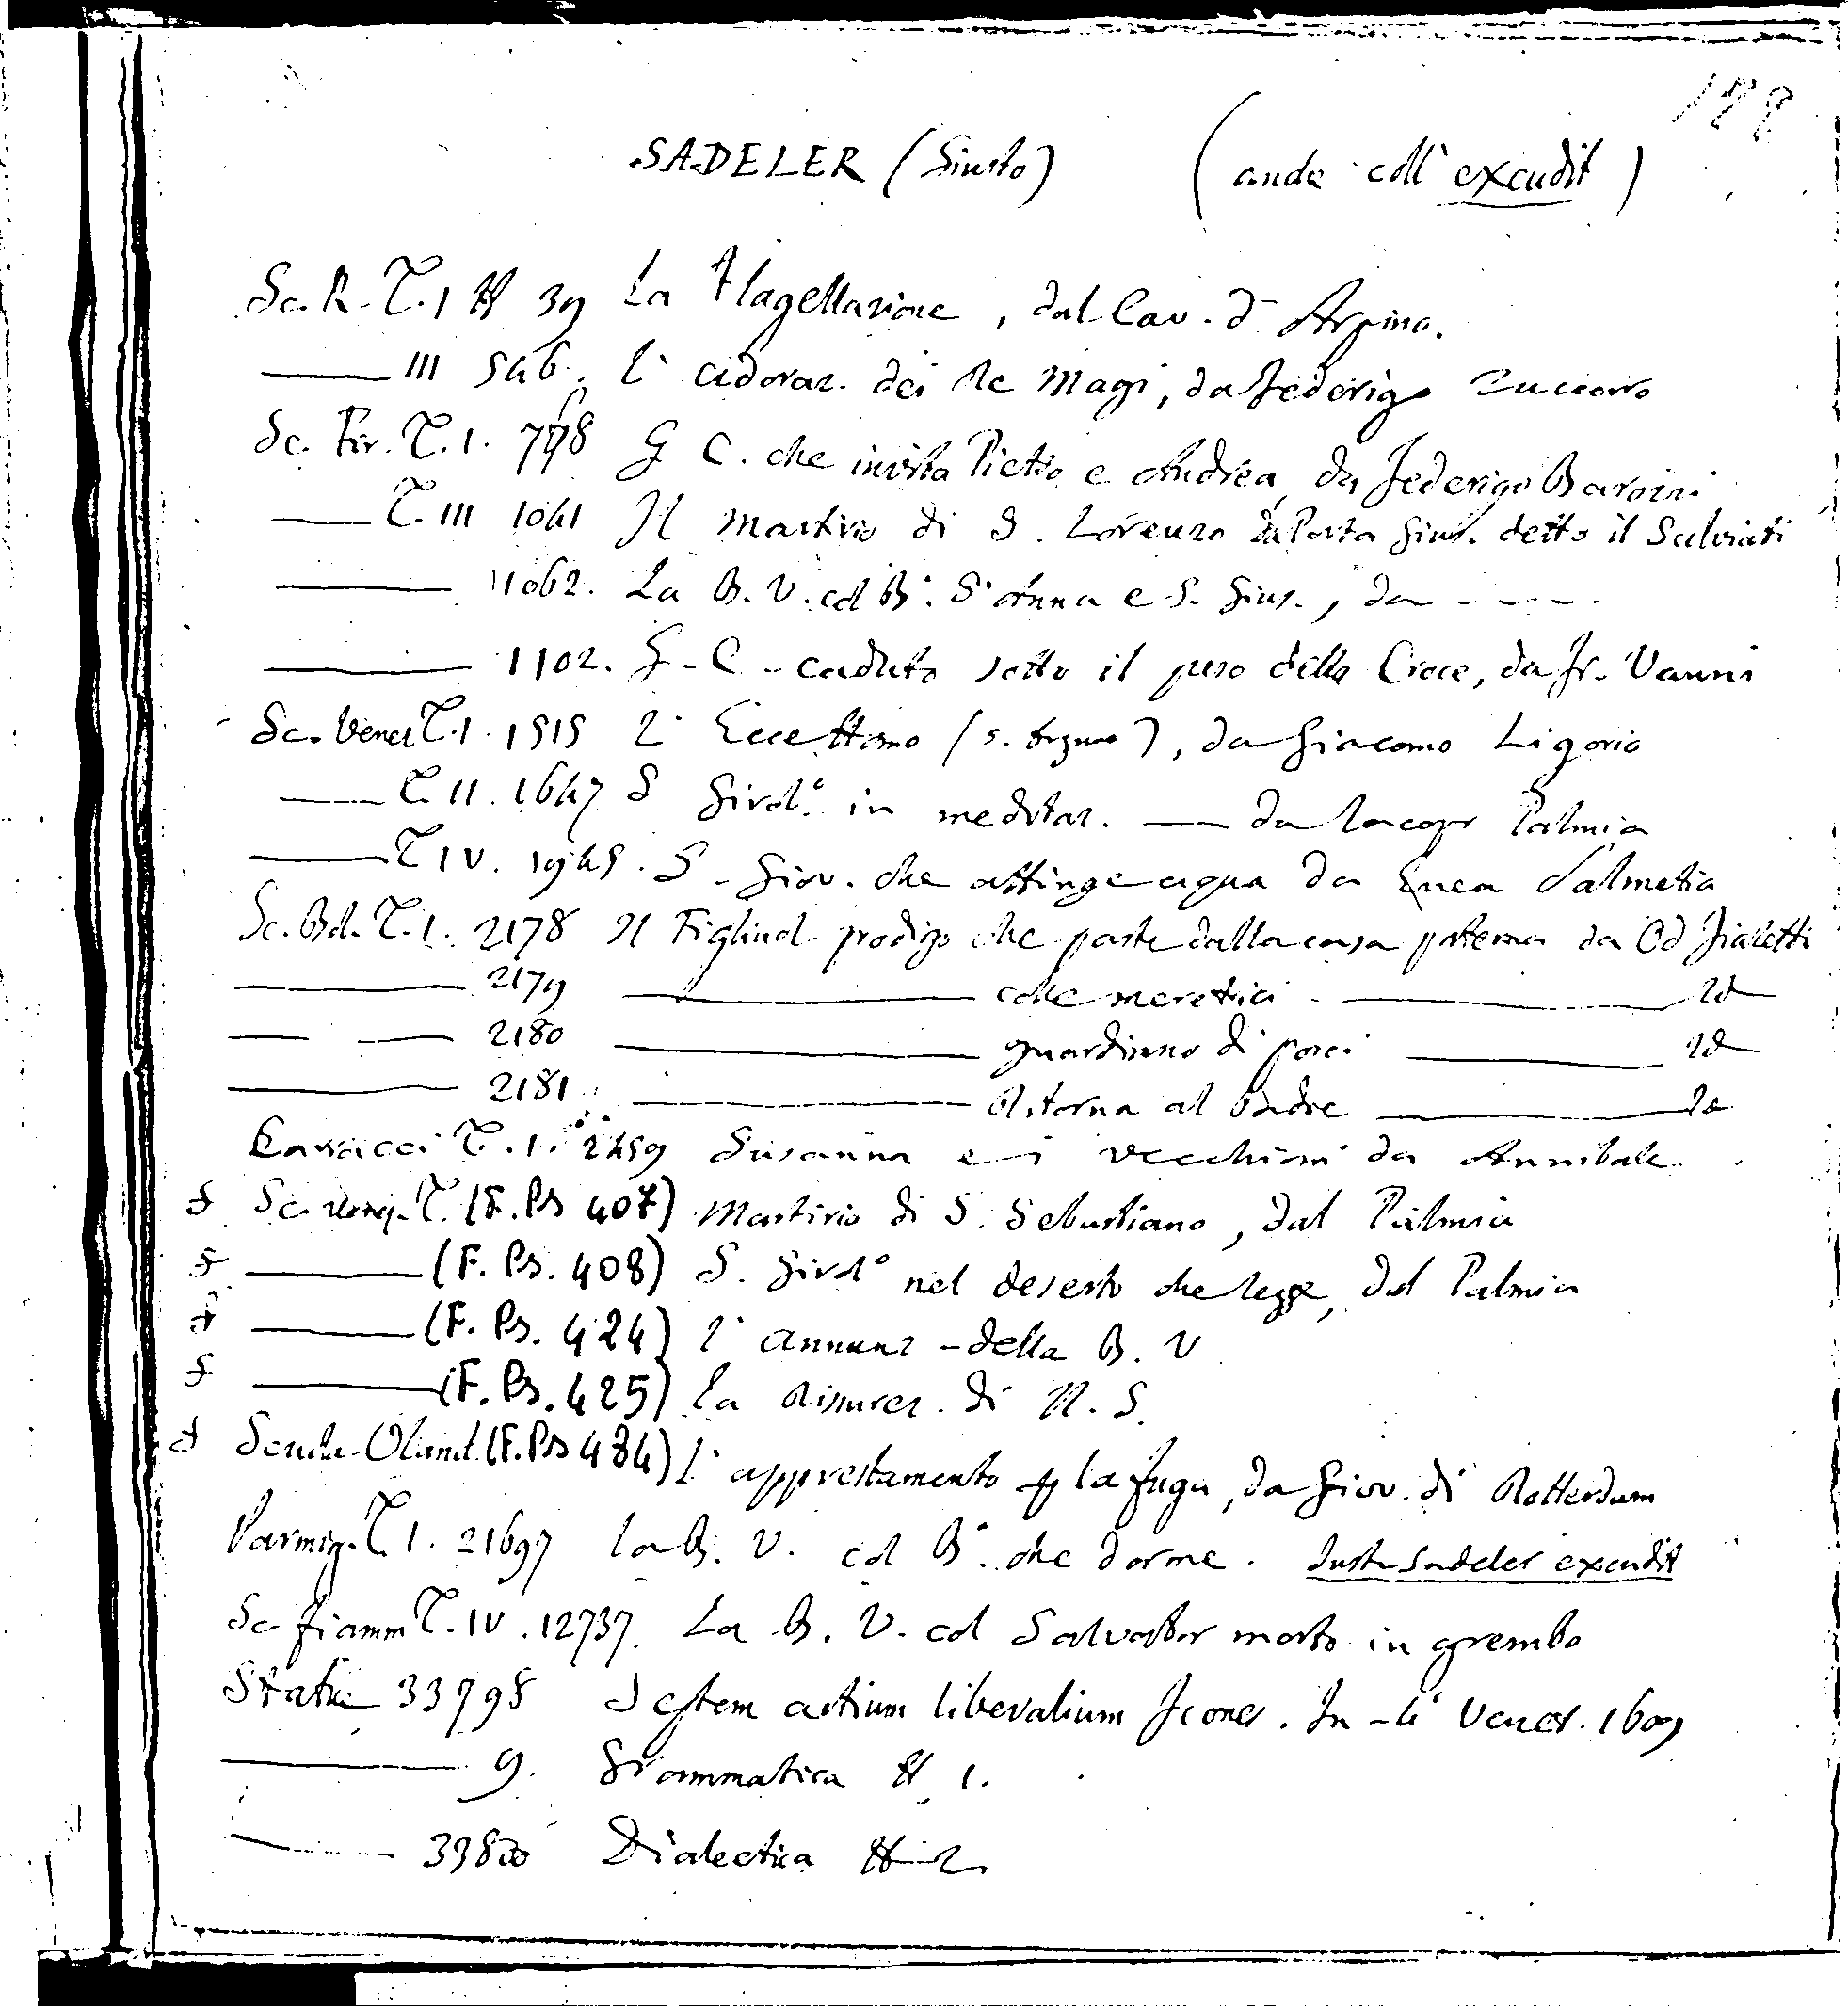 198
SADELER (Giusto) (anche coll' excudit)
Sc. R. T. I # 39 La Flagellazione, dal Cav. d' Arpino.
——— III 546. L' adoraz. dei Re Magi, da Federigo Zuccaro
Sc. Fir. T. I. 778 G C. che invita Pietro e Andrea, da Federigo Barozzi
——— T. III 1041 Il Martirio di S. Lorenzo da Porta Gius. detto il Salviati
——— 1062. La B. V. col B.º S. Anna e S. Gius., da - - - - -
——— 1102. G. C. caduto sotto il peso della Croce, da Fr. Vanni
Sc. Venez T. I. 1515 L' Ecce Homo, da Giacomo Ligorio
——— T. II. 1647 S Girol.º in meditaz. —— da Jacopo Palmia
——— T IV. 1945. S. Giov. che attinge aqua da Enea Salmetia
Sc. Bol. T. I. 2178 Il Figliuol prodigo che parte dalla casa paterna da Od Fialetti
——— 2179 ——— colle meretrici ——— Id
——— 2180 ——— guardiano di porci ——— Id
——— 2181 ——— Ritorna al Padre ——— Id
Caracci T. I. 2459 Susanna e i vecchioni da Annibale
Sc. Venez. T. (F. Bs 407) Martirio di S. Sebastiano, dal Palmia
——— (F. Bs. 408) S. Girolº nel deserto che legge, dal Palmia
——— (F. Bs. 424) L' annunz. della B. V
——— (F. Bs. 425) La Risurez. di N. S.
Scuola Oland. (F. Bs 484) L' apprestamento p la fuga, da Giov. di Rotterdam
Parmig. T I. 21697 La B. V. col B.º che dorme. Justus Sadeler excudit
Sc fiamm T. IV. 12737. La B. V. col Salvator morto in grembo
Statue 33798 Septem artium liberalium Icones. In-4º Venet. 1609
——— 9. Grammatica # 1.
——— 33800 Dialectica # 2